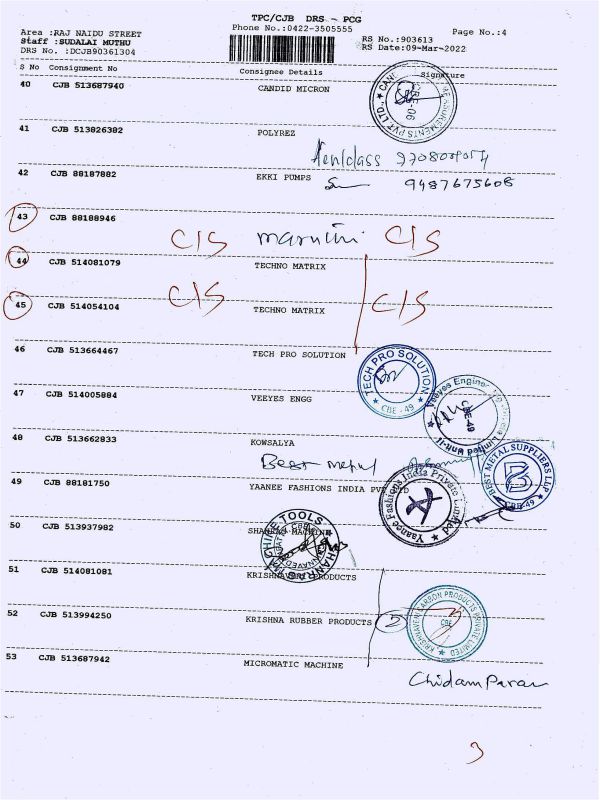 TPC/CJB DRS - PCG
Area :RAJ NAIDU STREET
Phone No.:0422-3505555
Page No.:4
Staff :SUDALAI MUTHU
RS No.:903613
DRS No. :DCJB90361304
RS Date:09-Mar-2022
S No Consignment No Consignee Details Signature
40 CJB 513687940 CANDID MICRON
41 CJB 513826382 POLYREZ
9708009054
42 CJB 88187882 EKKI PUMPS 9487675608
43 CJB 88188946
C/S C/S
44 CJB 514081079 TECHNO MATRIX
C/S C/S
45 CJB 514054104 TECHNO MATRIX
46 CJB 513664467 TECH PRO SOLUTION
TECH PRO SOLUTION
CBE - 49
47 CJB 514005884 VEEYES ENGG
Veeyes Engine
CBE-49
48 CJB 513662833 KOWSALYA
Best metal
BEST METAL SUPPLIERS LLP
B
CBE-49
49 CJB 88181750 YAANEE FASHIONS INDIA PVT LTD
Yaanee Fashions India Private Limited
50 CJB 513937982 SHANKAR MACHINE
MACHINE TOOLS
51 CJB 514081081 KRISHNAVENI PRODUCTS
52 CJB 513994250 KRISHNA RUBBER PRODUCTS 2
KRISHNAVENI CARBON PRODUCTS PRIVATE LIMITED
CBE
53 CJB 513687942 MICROMATIC MACHINE
3